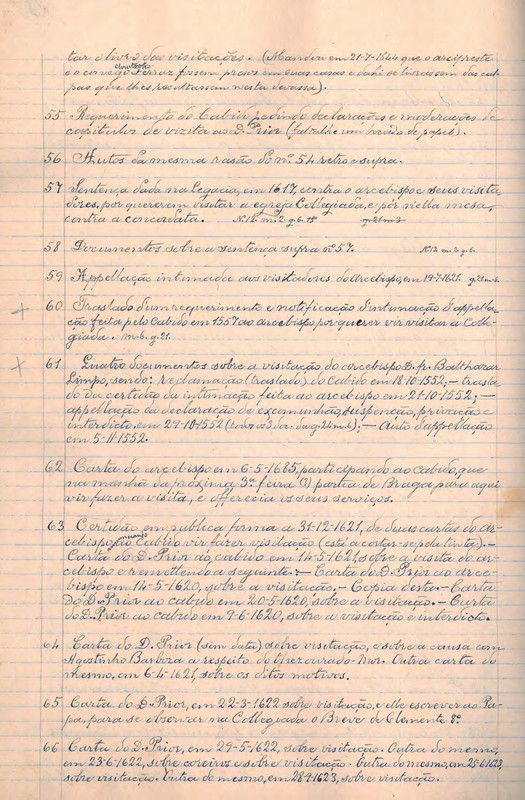 tar o livro das visitações. (Mandou em 21-7-1644 que o arcipreste
e o conego Ferraz fossem presos em suas casas e dahi se livrassem das cul-
pas que lhes resultassem nesta devassa).
55 Requerimento do Cabido pedindo declarações e moderações de
capitulos de vizita ao D. Prior (falta-lhe um boccado de papel).
56 Autos da mesma rasão do nº 54 retro e supra.
57 Sentença dada na Legacia, em 1617, contra o arcebispo e seus visita
dores, por quererem visitar a egreja Collegiada, e pôr nella mesa,
contra a concordata. Nº 12. m. 2. g. 6. 1º g. 21 m 3
58 Documentos sobre a sentença supra nº 57. Nº 12 m. 2. g. 6.
59 Appellação intimada aos visitadores do arcebispo, em 19-7-1621. g. 21 m.
60 Traslado d'um requerimento e notificação d'intimação d'appella-
ção feita pelo Cabido em 1557 ao arcebispo, por querer vir visitar a Colle-
giada. m. 6. g. 21.
61 Quatro documentos sobre a visitação do arcebispo D. fr. Balthazar
Limpo, sendo: reclamação (traslado) do Cabido em 18-10-1552, — trasla-
do da certidão da intimação feita ao arcebispo em 21-10-1552; —
appellação da declaração de excomunhão, suspenção, privação e
interdicto, em 29-10-1552 (todos os 3 dão da g. 24 m. 6); — Auto d'appellação
em 5-11-1552.
62 Carta do arcebispo em 6-5-1685, participando ao cabido, que
na manhã da proxima 3ª feira (?) partia de Braga para aqui
vir fazer a visita, e offerecia os seus serviços.
63 Certidão, em publica forma a 31-12-1621, de duas cartas do ar-
cebispo, ao Cabido vir fazer visitação (está a cortar-se pela tinta). —
Carta do D. Prior ao cabido em 14-5-1621, sobre a visita do ar-
cebispo e remettendo a seguinte: — Carta do D. Prior ao arce-
bispo em 14-5-1620, sobre a visitação. — Copia desta. — Carta
do D. Prior ao cabido em 20-5-1620, sobre a visitação. — Carta
do D. Prior ao cabido em 9-6-1620, sobre a visitação e interdicto.
64 Carta do D. Prior (sem data) sobre visitação, e sobre a causa com
Agostinho Barboza a respeito do thezourado-mor. Outra carta do
mesmo, em 6-4-1621, sobre os ditos motivos.
65 Carta do D. Prior, em 22-3-1622 sobre visitação, e elle escrever ao Pa-
pa, para se observar na Collegiada o Breve de Clemente 8º.
66 Carta do D. Prior, em 29-5-1622, sobre visitação. Outra do mesmo,
em 23-6-1622, sobre coreiros e sobre visitação. Outra do mesmo, em 25-6-1623,
sobre visitação. Outra do mesmo, em 28-9-1623, sobre visitação.